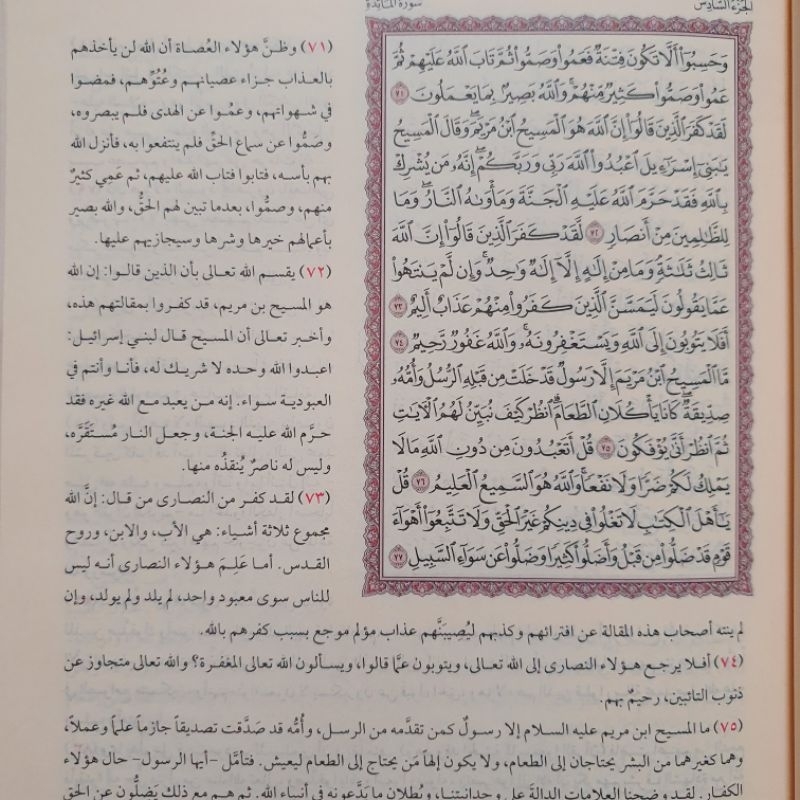 الجزء السادس
سورة المائدة
وَحَسِبُوٓا۟ أَلَّا تَكُونَ فِتْنَةٌ فَعَمُوا۟ وَصَمُّوا۟ ثُمَّ تَابَ ٱللَّهُ عَلَيْهِمْ ثُمَّ
عَمُوا۟ وَصَمُّوا۟ كَثِيرٌ مِّنْهُمْ ۚ وَٱللَّهُ بَصِيرٌۢ بِمَا يَعْمَلُونَ ٧١
لَقَدْ كَفَرَ ٱلَّذِينَ قَالُوٓا۟ إِنَّ ٱللَّهَ هُوَ ٱلْمَسِيحُ ٱبْنُ مَرْيَمَ ۖ وَقَالَ ٱلْمَسِيحُ
يَـٰبَنِىٓ إِسْرَٰٓءِيلَ ٱعْبُدُوا۟ ٱللَّهَ رَبِّى وَرَبَّكُمْ ۖ إِنَّهُۥ مَن يُشْرِكْ
بِٱللَّهِ فَقَدْ حَرَّمَ ٱللَّهُ عَلَيْهِ ٱلْجَنَّةَ وَمَأْوَىٰهُ ٱلنَّارُ ۖ وَمَا
لِلظَّـٰلِمِينَ مِنْ أَنصَارٍ ٧٢ لَّقَدْ كَفَرَ ٱلَّذِينَ قَالُوٓا۟ إِنَّ ٱللَّهَ
ثَالِثُ ثَلَـٰثَةٍ ۘ وَمَا مِنْ إِلَـٰهٍ إِلَّآ إِلَـٰهٌ وَٰحِدٌ ۚ وَإِن لَّمْ يَنتَهُوا۟
عَمَّا يَقُولُونَ لَيَمَسَّنَّ ٱلَّذِينَ كَفَرُوا۟ مِنْهُمْ عَذَابٌ أَلِيمٌ ٧٣
أَفَلَا يَتُوبُونَ إِلَى ٱللَّهِ وَيَسْتَغْفِرُونَهُۥ ۚ وَٱللَّهُ غَفُورٌ رَّحِيمٌ ٧٤
مَّا ٱلْمَسِيحُ ٱبْنُ مَرْيَمَ إِلَّا رَسُولٌ قَدْ خَلَتْ مِن قَبْلِهِ ٱلرُّسُلُ وَأُمُّهُۥ
صِدِّيقَةٌ ۖ كَانَا يَأْكُلَانِ ٱلطَّعَامَ ۗ ٱنظُرْ كَيْفَ نُبَيِّنُ لَهُمُ ٱلْـَٔايَـٰتِ
ثُمَّ ٱنظُرْ أَنَّىٰ يُؤْفَكُونَ ٧٥ قُلْ أَتَعْبُدُونَ مِن دُونِ ٱللَّهِ مَا لَا
يَمْلِكُ لَكُمْ ضَرًّا وَلَا نَفْعًا ۚ وَٱللَّهُ هُوَ ٱلسَّمِيعُ ٱلْعَلِيمُ ٧٦ قُلْ
يَـٰٓأَهْلَ ٱلْكِتَـٰبِ لَا تَغْلُوا۟ فِى دِينِكُمْ غَيْرَ ٱلْحَقِّ وَلَا تَتَّبِعُوٓا۟ أَهْوَآءَ
قَوْمٍ قَدْ ضَلُّوا۟ مِن قَبْلُ وَأَضَلُّوا۟ كَثِيرًا وَضَلُّوا۟ عَن سَوَآءِ ٱلسَّبِيلِ ٧٧
(٧١) وظنَّ هؤلاء العُصاة أن الله لن يأخذهم
بالعذاب جزاء عصيانهم وعُتُوِّهم، فمضوا
في شهواتهم، وعمُوا عن الهدى فلم يبصروه،
وصَمُّوا عن سماع الحقِّ فلم ينتفعوا به، فأنزل الله
بهم بأسه، فتابوا فتاب الله عليهم، ثم عَمِي كثيرٌ
منهم، وصمُّوا، بعدما تبين لهم الحقُّ، والله بصير
بأعمالهم خيرها وشرها وسيجازيهم عليها.
(٧٢) يقسم الله تعالى بأن الذين قالوا: إن الله
هو المسيح بن مريم، قد كفروا بمقالتهم هذه،
وأخبر تعالى أن المسيح قال لبني إسرائيل:
اعبدوا الله وحده لا شريك له، فأنا وأنتم في
العبودية سواء. إنه من يعبد مع الله غيره فقد
حرَّم الله عليه الجنة، وجعل النار مُستَقَرَّه،
وليس له ناصرٌ يُنقذُه منها.
(٧٣) لقد كفر من النصارى من قال: إنَّ الله
مجموع ثلاثة أشياء: هي الأب، والابن، وروح
القدس. أما عَلِمَ هؤلاء النصارى أنه ليس
للناس سوى معبود واحد، لم يلد ولم يولد، وإن
لم ينته أصحاب هذه المقالة عن افترائهم وكذبهم ليُصِيبَنَّهم عذاب مؤلم موجع بسبب كفرهم بالله.
(٧٤) أفلا يرجع هؤلاء النصارى إلى الله تعالى، ويتوبون عمَّا قالوا، ويسألون الله تعالى المغفرة؟ والله تعالى متجاوز عن
ذنوب التائبين، رحيمٌ بهم.
(٧٥) ما المسيح ابن مريم عليه السلام إلا رسولٌ كمن تقدَّمه من الرسل، وأُمُّه قد صَدَّقت تصديقاً جازماً علماً وعملاً،
وهما كغيرهما من البشر يحتاجان إلى الطعام، ولا يكون إلهاً مَن يحتاج إلى الطعام ليعيش. فتأمَّل -أيها الرسول- حال هؤلاء
الكفار. لقد وضحنا العلامات الدالةَ على وحدانيتنا، وبُطلان ما يَدَّعونه في أنبياء الله. ثم هم مع ذلك يَضلُّون عن الحق